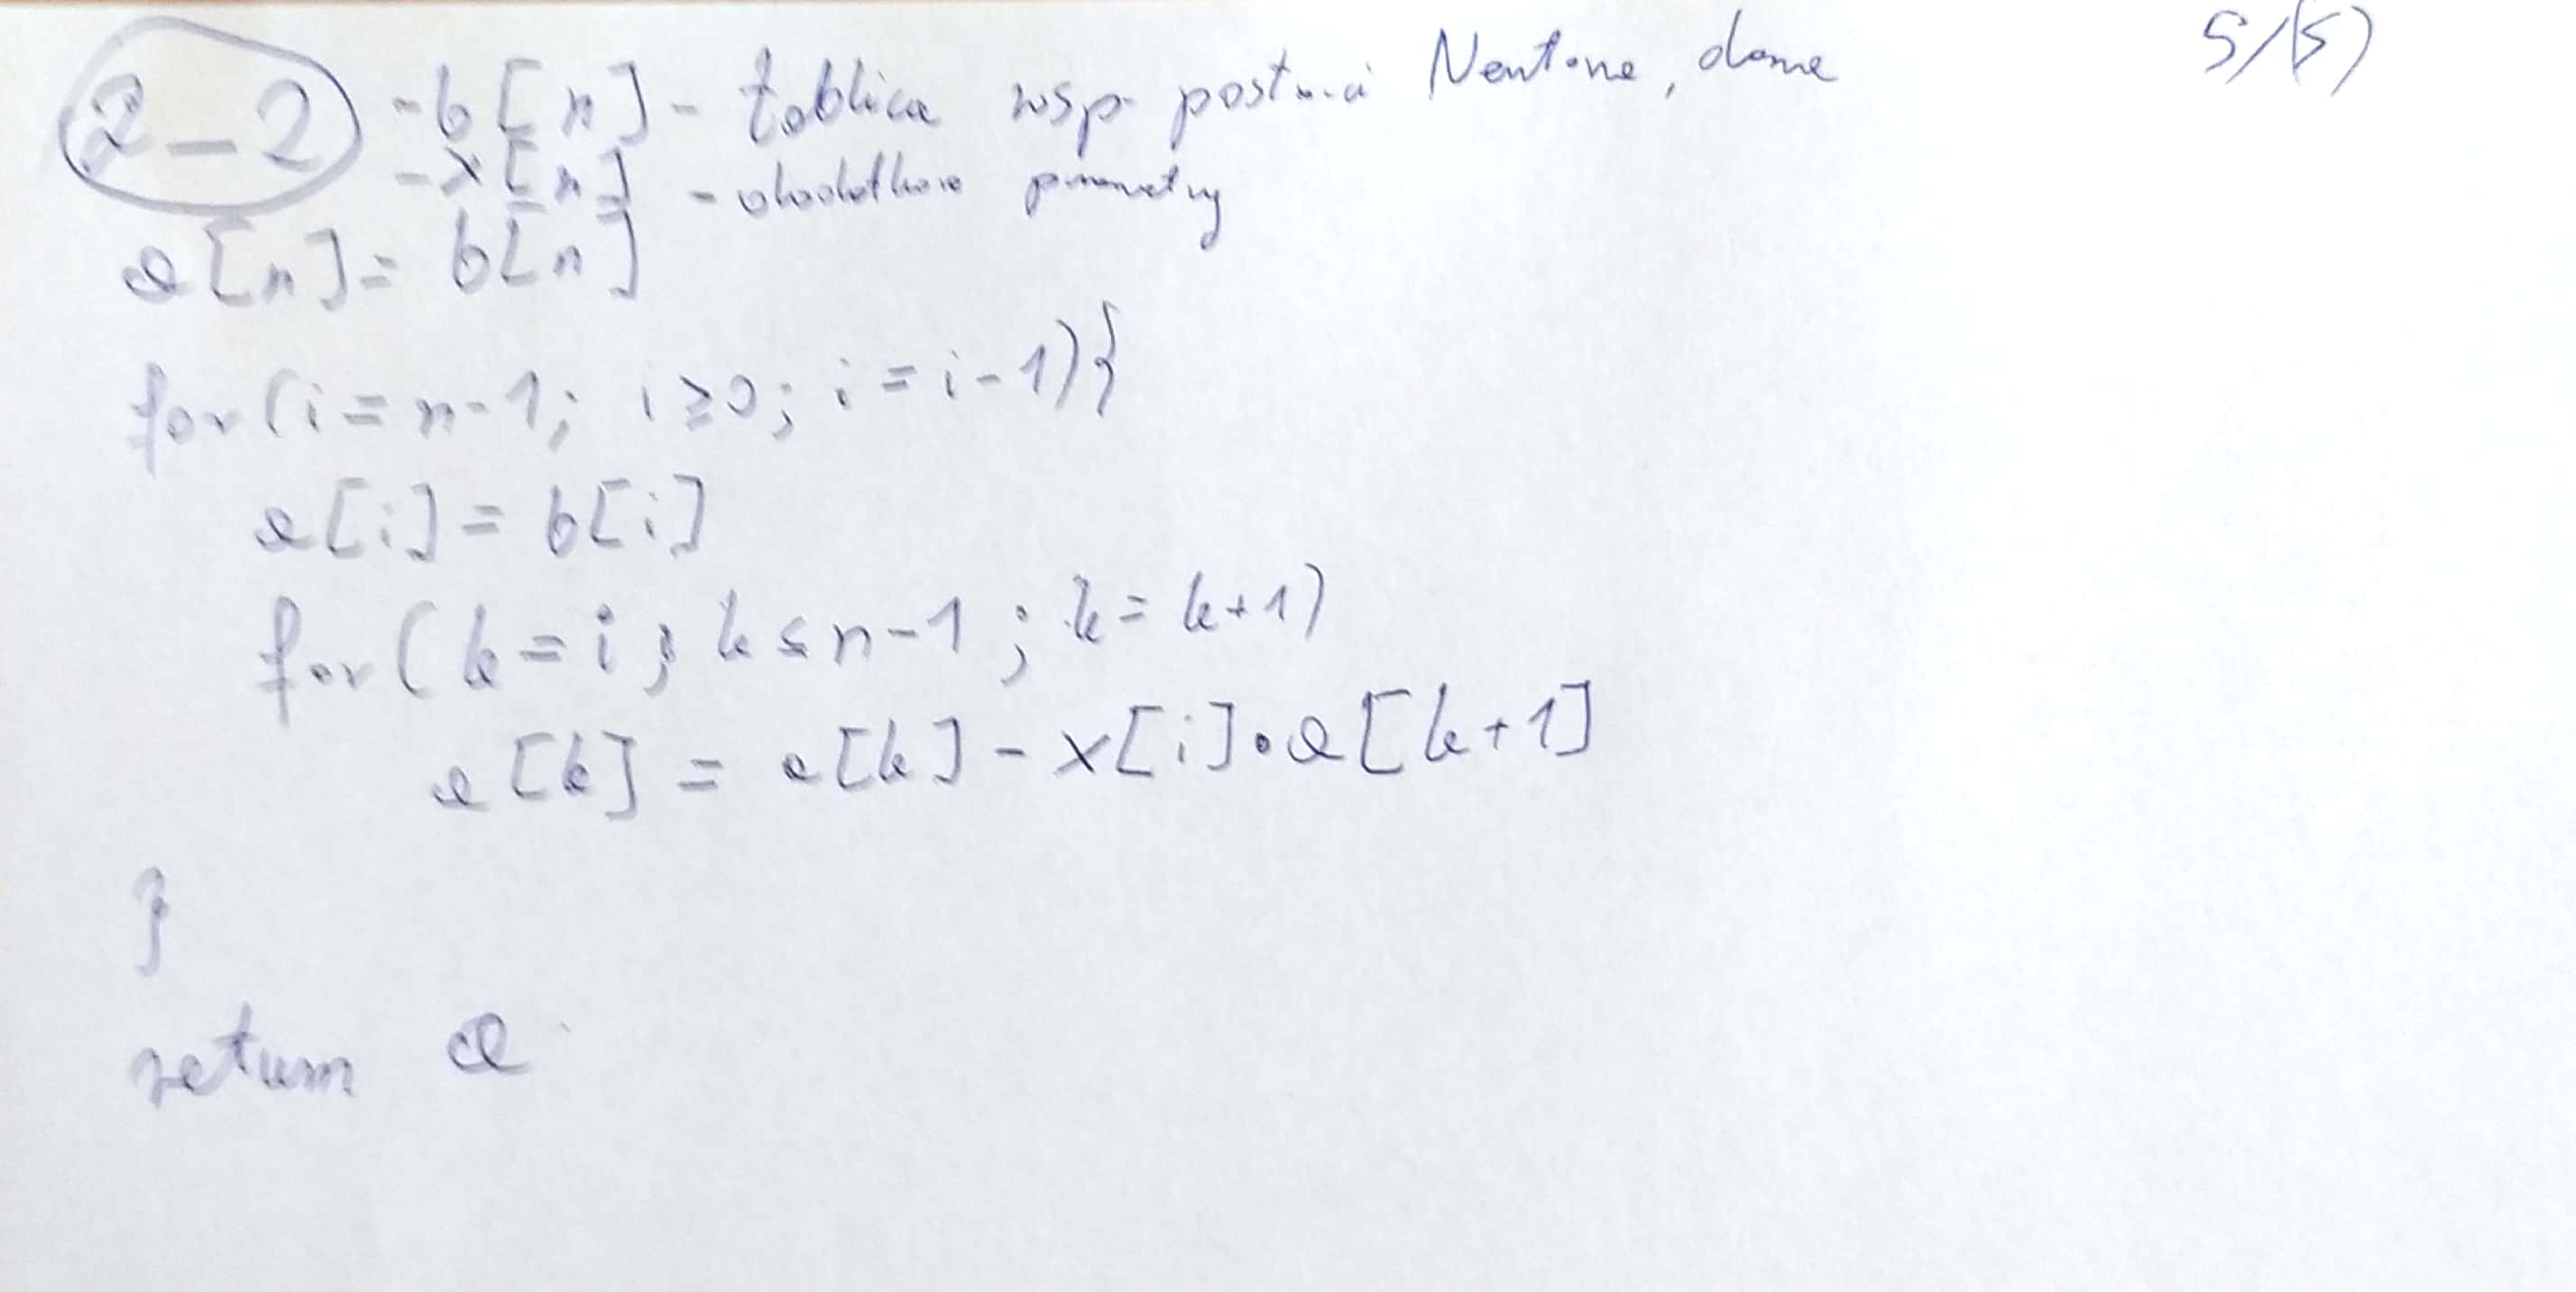 2-2 - b[n] - tablica wsp postaci Newtona, dane 5/(5)
- x[n] - dodatkowe parametry
a[n] = b[n]
for(i=n-1; i≥0; i=i-1){
a[i] = b[i]
for(k=i; k≤n-1; k=k+1)
a[k] = a[k] - x[i]•a[k+1]
}
return a